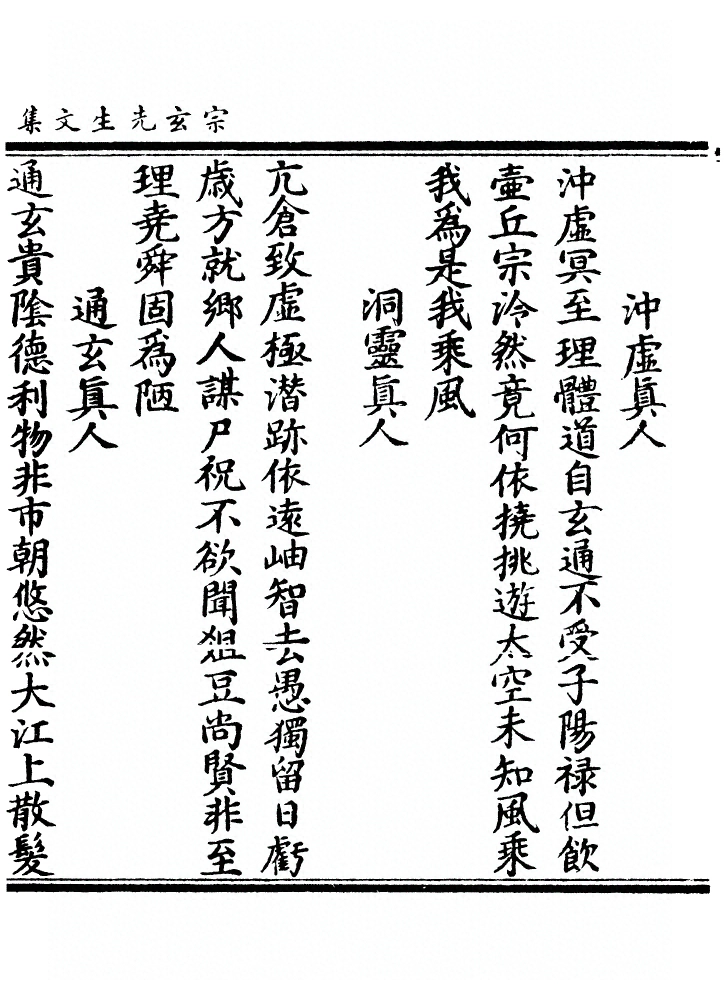 宗玄先生文集
沖虛眞人
沖虛冥至理體道自玄通不受子陽禄但飲
壷丘宗泠然竟何依撓挑遊太空未知風乘
我爲是我乘風
洞靈眞人
亢倉致虛極潜跡依遠岫智去愚獨留日虧
歳方就鄉人謀尸祝不欲聞爼豆尚賢非至
理堯舜固爲陋
通玄眞人
通玄貴隂德利物非市朝悠然大江上散髮